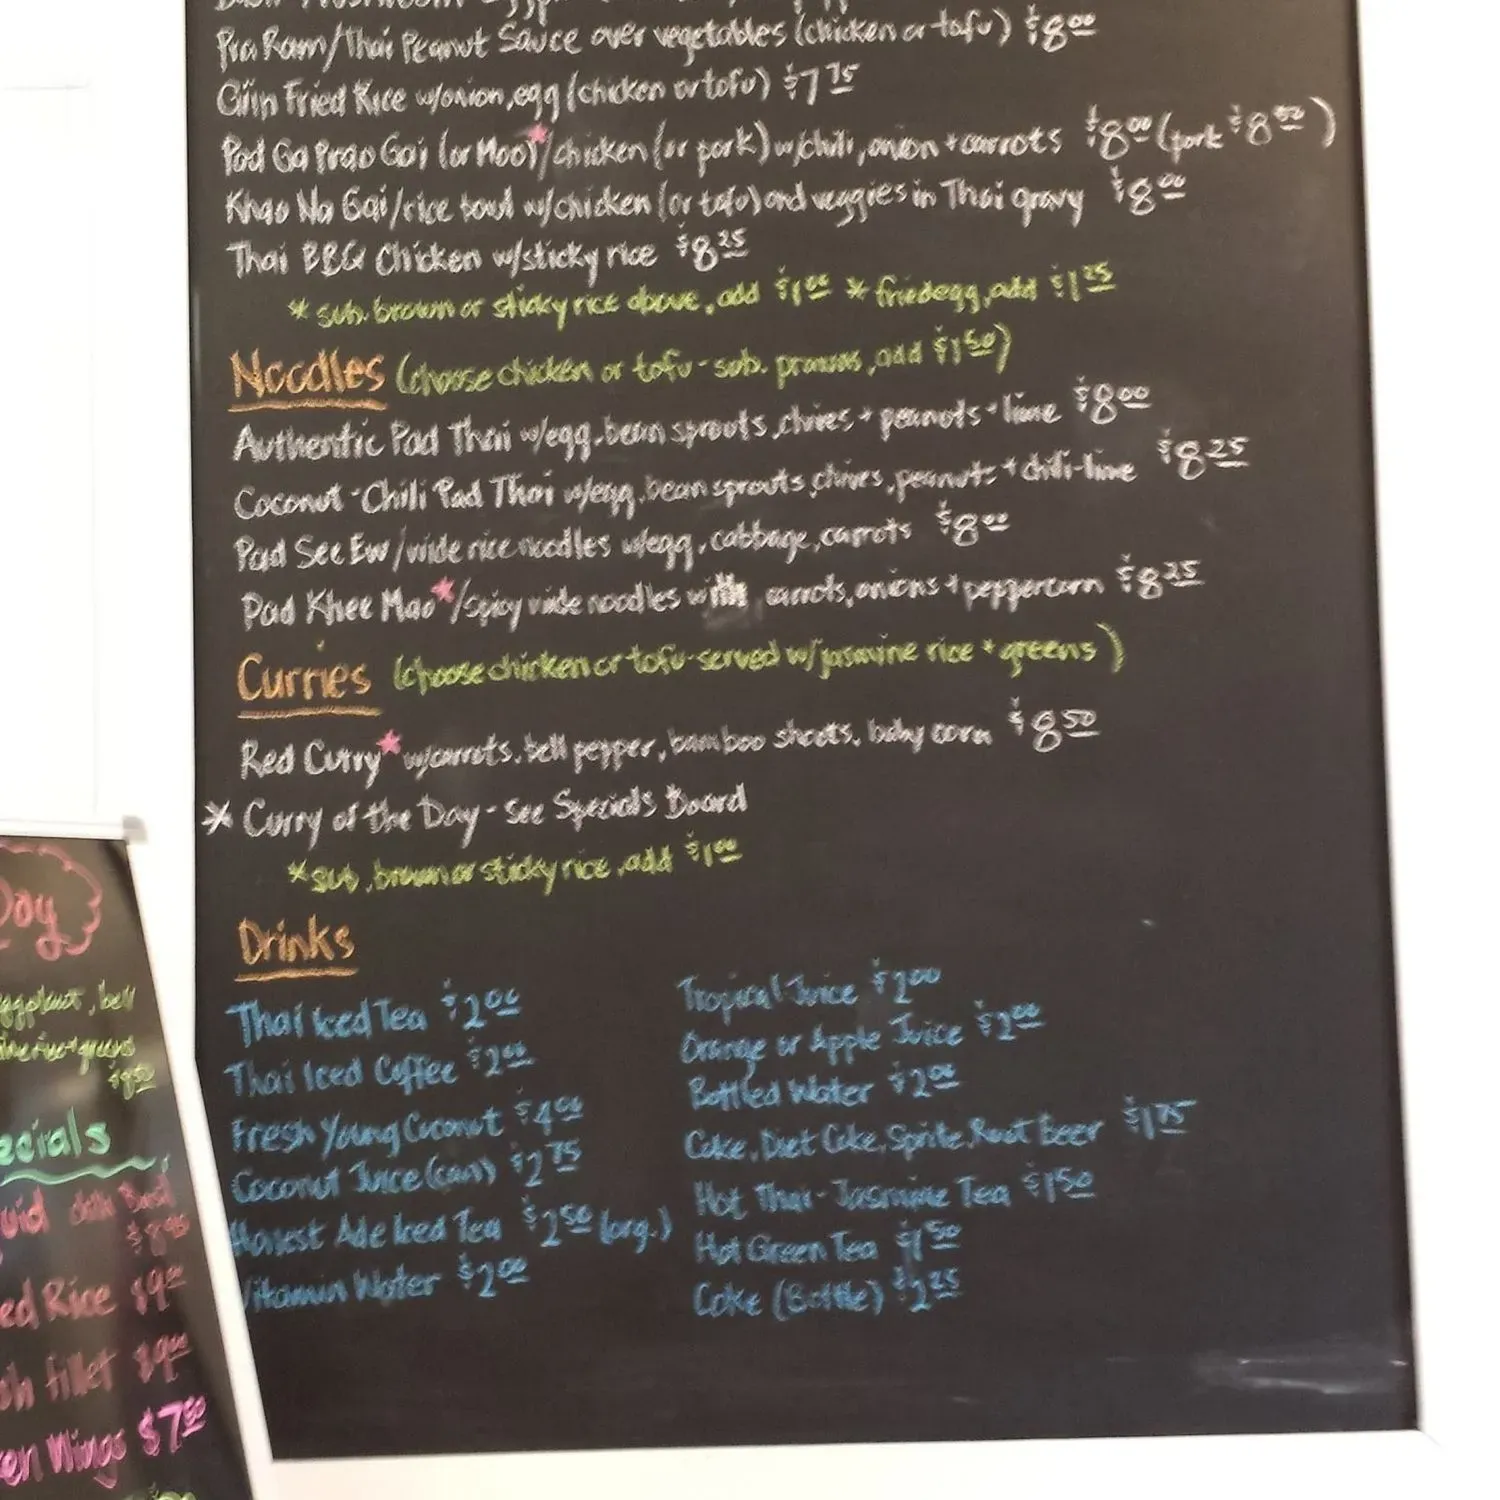 Pra Ram/Thai Peanut Sauce over vegetables (chicken or tofu) $8.00
Fried Rice w/onion, egg (chicken or tofu) $7.75
Pad Ga Prao Gai (or Moo)*/chicken (or pork) w/chili, onion + carrots $8.00 (pork $8.50)
Khao Na Gai/rice bowl w/chicken (or tofu) and veggies in Thai gravy $8.00
Thai BBQ Chicken w/sticky rice $8.25
* sub. brown or sticky rice above, add $1.00 * fried egg, add $1.25
Noodles (choose chicken or tofu - sub. prawns, add $1.50)
Authentic Pad Thai w/egg, bean sprouts, chives + peanuts + lime $8.00
Coconut-Chili Pad Thai w/egg, bean sprouts, chives, peanuts + chili-lime $8.25
Pad See Ew/wide rice noodles w/egg, cabbage, carrots $8.00
Pad Khee Mao*/spicy wide noodles with carrots, onions + peppercorn $8.25
Curries (choose chicken or tofu-served w/jasmine rice + greens)
Red Curry* w/carrots, bell pepper, bamboo shoots, baby corn $8.50
* Curry of the Day - See Specials Board
*sub. brown or sticky rice, add $1.00
Drinks
Thai Iced Tea $2.00
Thai Iced Coffee $2.00
Fresh Young Coconut $4.00
Coconut Juice (can) $2.75
Honest Ade Iced Tea $2.50 (org.)
Vitamin Water $2.00
Tropical Juice $2.00
Orange or Apple Juice $2.00
Bottled Water $2.00
Coke, Diet Coke, Sprite, Root Beer $1.75
Hot Thai-Jasmine Tea $1.50
Hot Green Tea $1.50
Coke (Bottle) $2.25
Day
eggplant, bell
$8.50
ecials
uid
ed Rice $9.00
fillet $9.00
en Wings $7.50